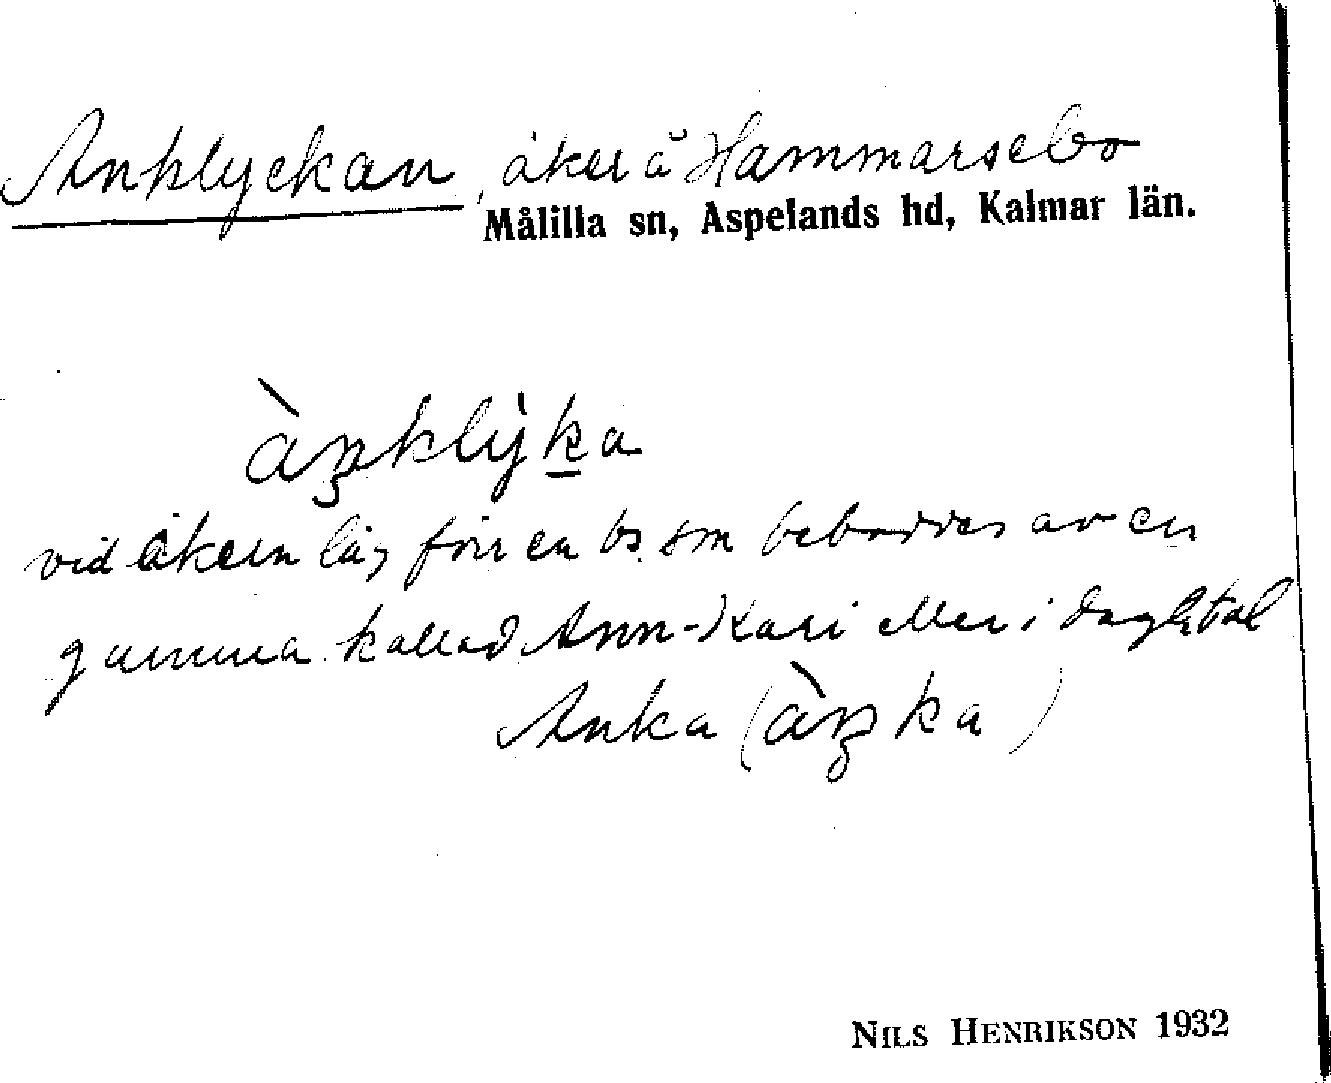 Anklyckan, åker å Hammarsebo
Målilla sn, Aspelands hd, Kalmar län.
àŋklỳka
vid åkern låg förr en bs. som beboddes av en
gumma kallad Ann-Kari eller i dagligtal
Anka (àŋka)
NILS HENRIKSON 1932